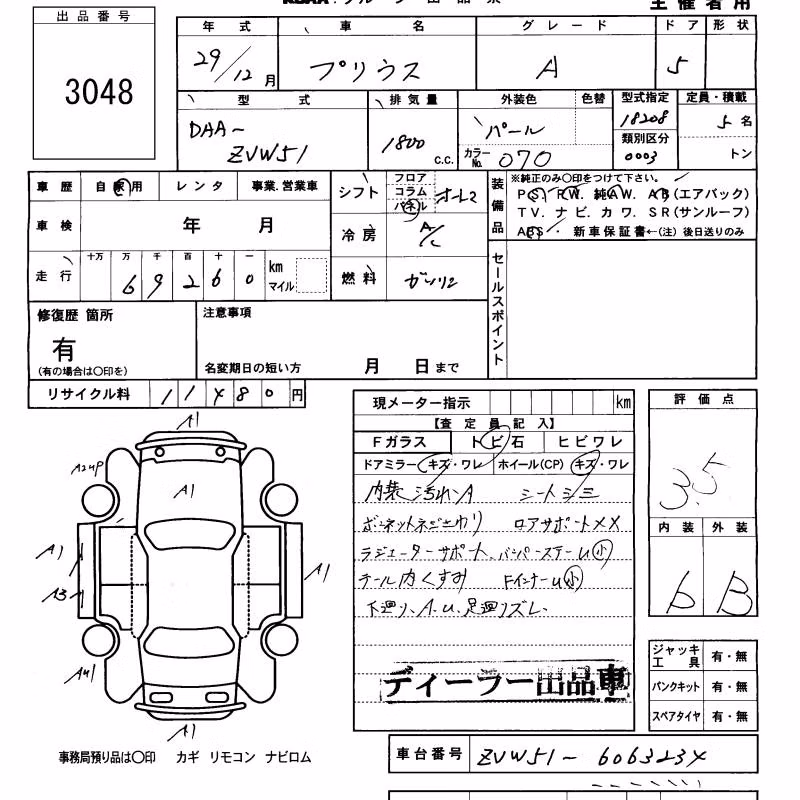 出品番号
3048
主催者用
年式 車名 グレード ドア 形状
29/12月 プリウス A 5
型式 排気量 外装色 色替 型式指定 定員・積載
DAA-
ZVW51
1800 c.c.
パール
カラーNo. 070
18208
類別区分
0003
5名
トン
車歴 自家用 レンタ 事業.営業車
車検 年 月
走行 十万 万 千 百 十 一
69260 km マイル
シフト フロア コラム パネル オートマ
冷房 A/C
燃料 ガソリン
装備品
※純正のみ〇印をつけて下さい。
PS. PW. 純AW. AB(エアバック)
TV. ナビ. カワ. SR(サンルーフ)
ABS・ 新車保証書←(注) 後日送りのみ
セールスポイント
修復歴 箇所
有
(有の場合は〇印を)
注意事項
名変期日の短い方 月 日まで
リサイクル料 11480円
現メーター指示 km
【査定員記入】
Fガラス トビ石 ヒビワレ
ドアミラー(キズ・ワレ ホイール(CP) キズ・ワレ
内装汚れA シートシミ
ボンネットネジさわり ロアサポートXX
ラジエーターサポート、バンパーステーU小
テール内くすみ FインナーU小
下廻り、A.U.足廻りズレ
ディーラー出品車
評価点
3.5
内装 外装
b B
ジャッキ工具 有・無
パンクキット 有・無
スペアタイヤ 有・無
A1
A2UP
A1
A1
A3
A1
AU1
A1
事務局預り品は〇印 カギ リモコン ナビロム
車台番号 ZVW51-606323X